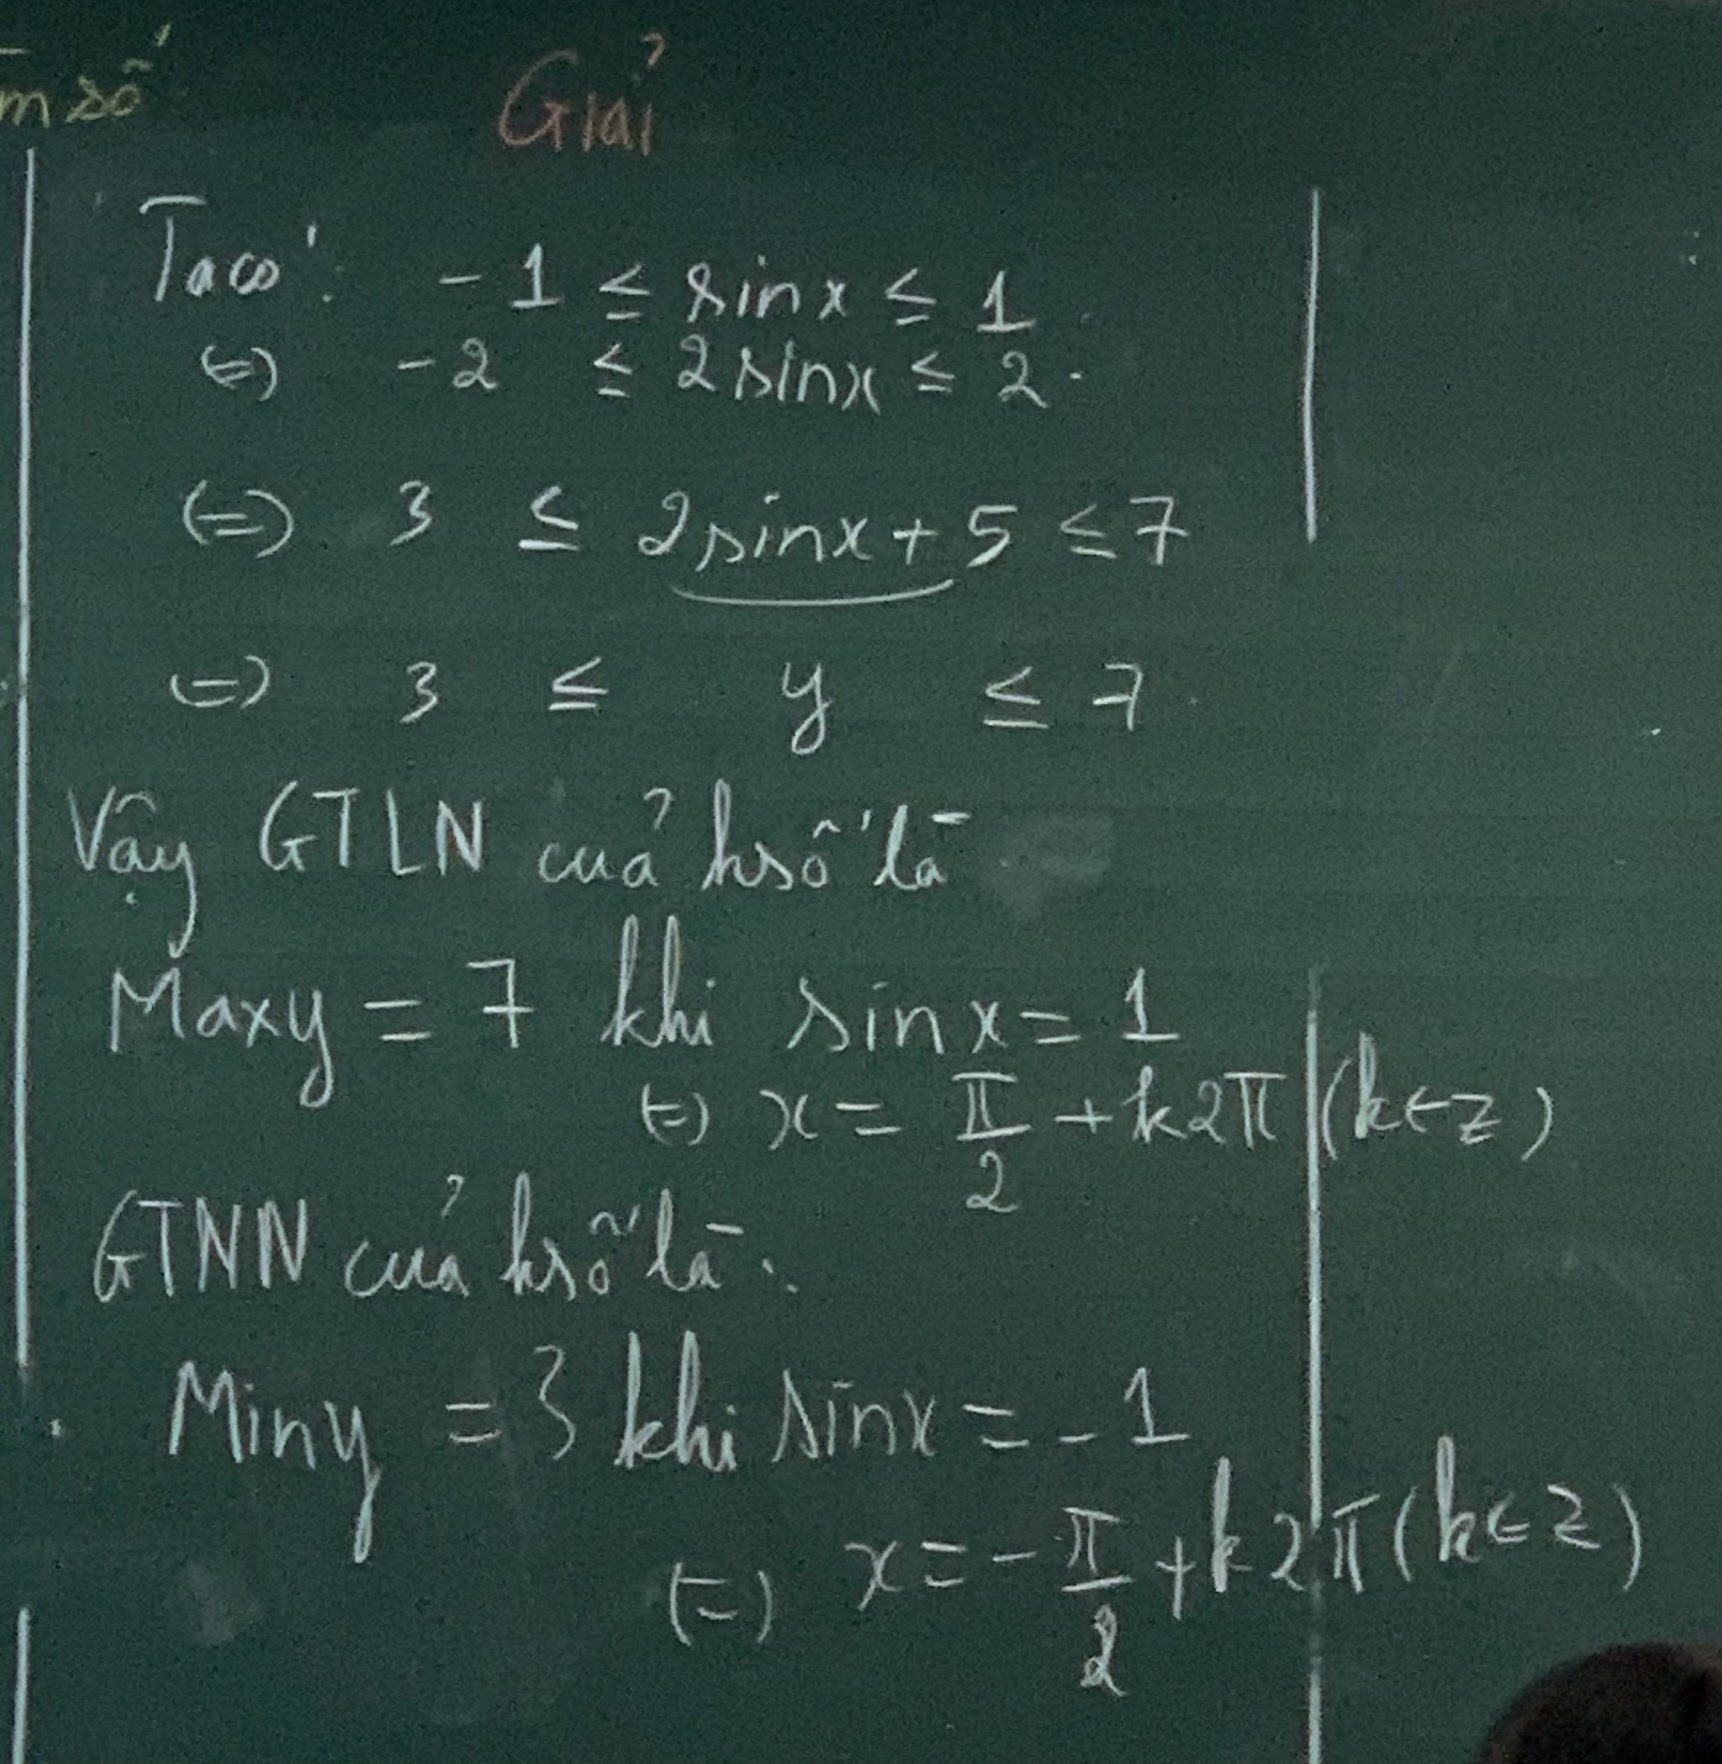 m số
Giải
Ta có: -1 ≤ sinx ≤ 1.
⇔ -2 ≤ 2sinx ≤ 2.
⇔ 3 ≤ 2sinx + 5 ≤ 7
⇔ 3 ≤ y ≤ 7.
Vậy GTLN của hsố là
Maxy = 7 khi sinx = 1
⇔ x = π/2 + k2π (k∈Z)
GTNN của hsố là:
Miny = 3 khi sinx = -1
⇔ x = -π/2 + k2π (k∈Z)